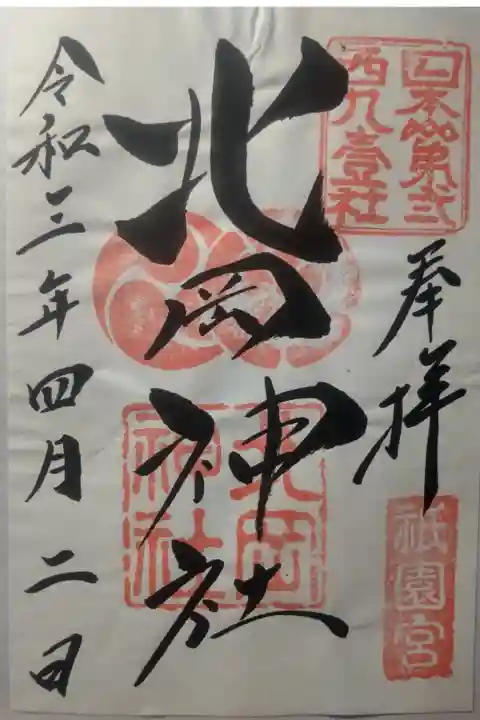 日本第弐
西九壹社
奉拝
祇園宮
北岡神社
北岡
神社
令和三年四月二日